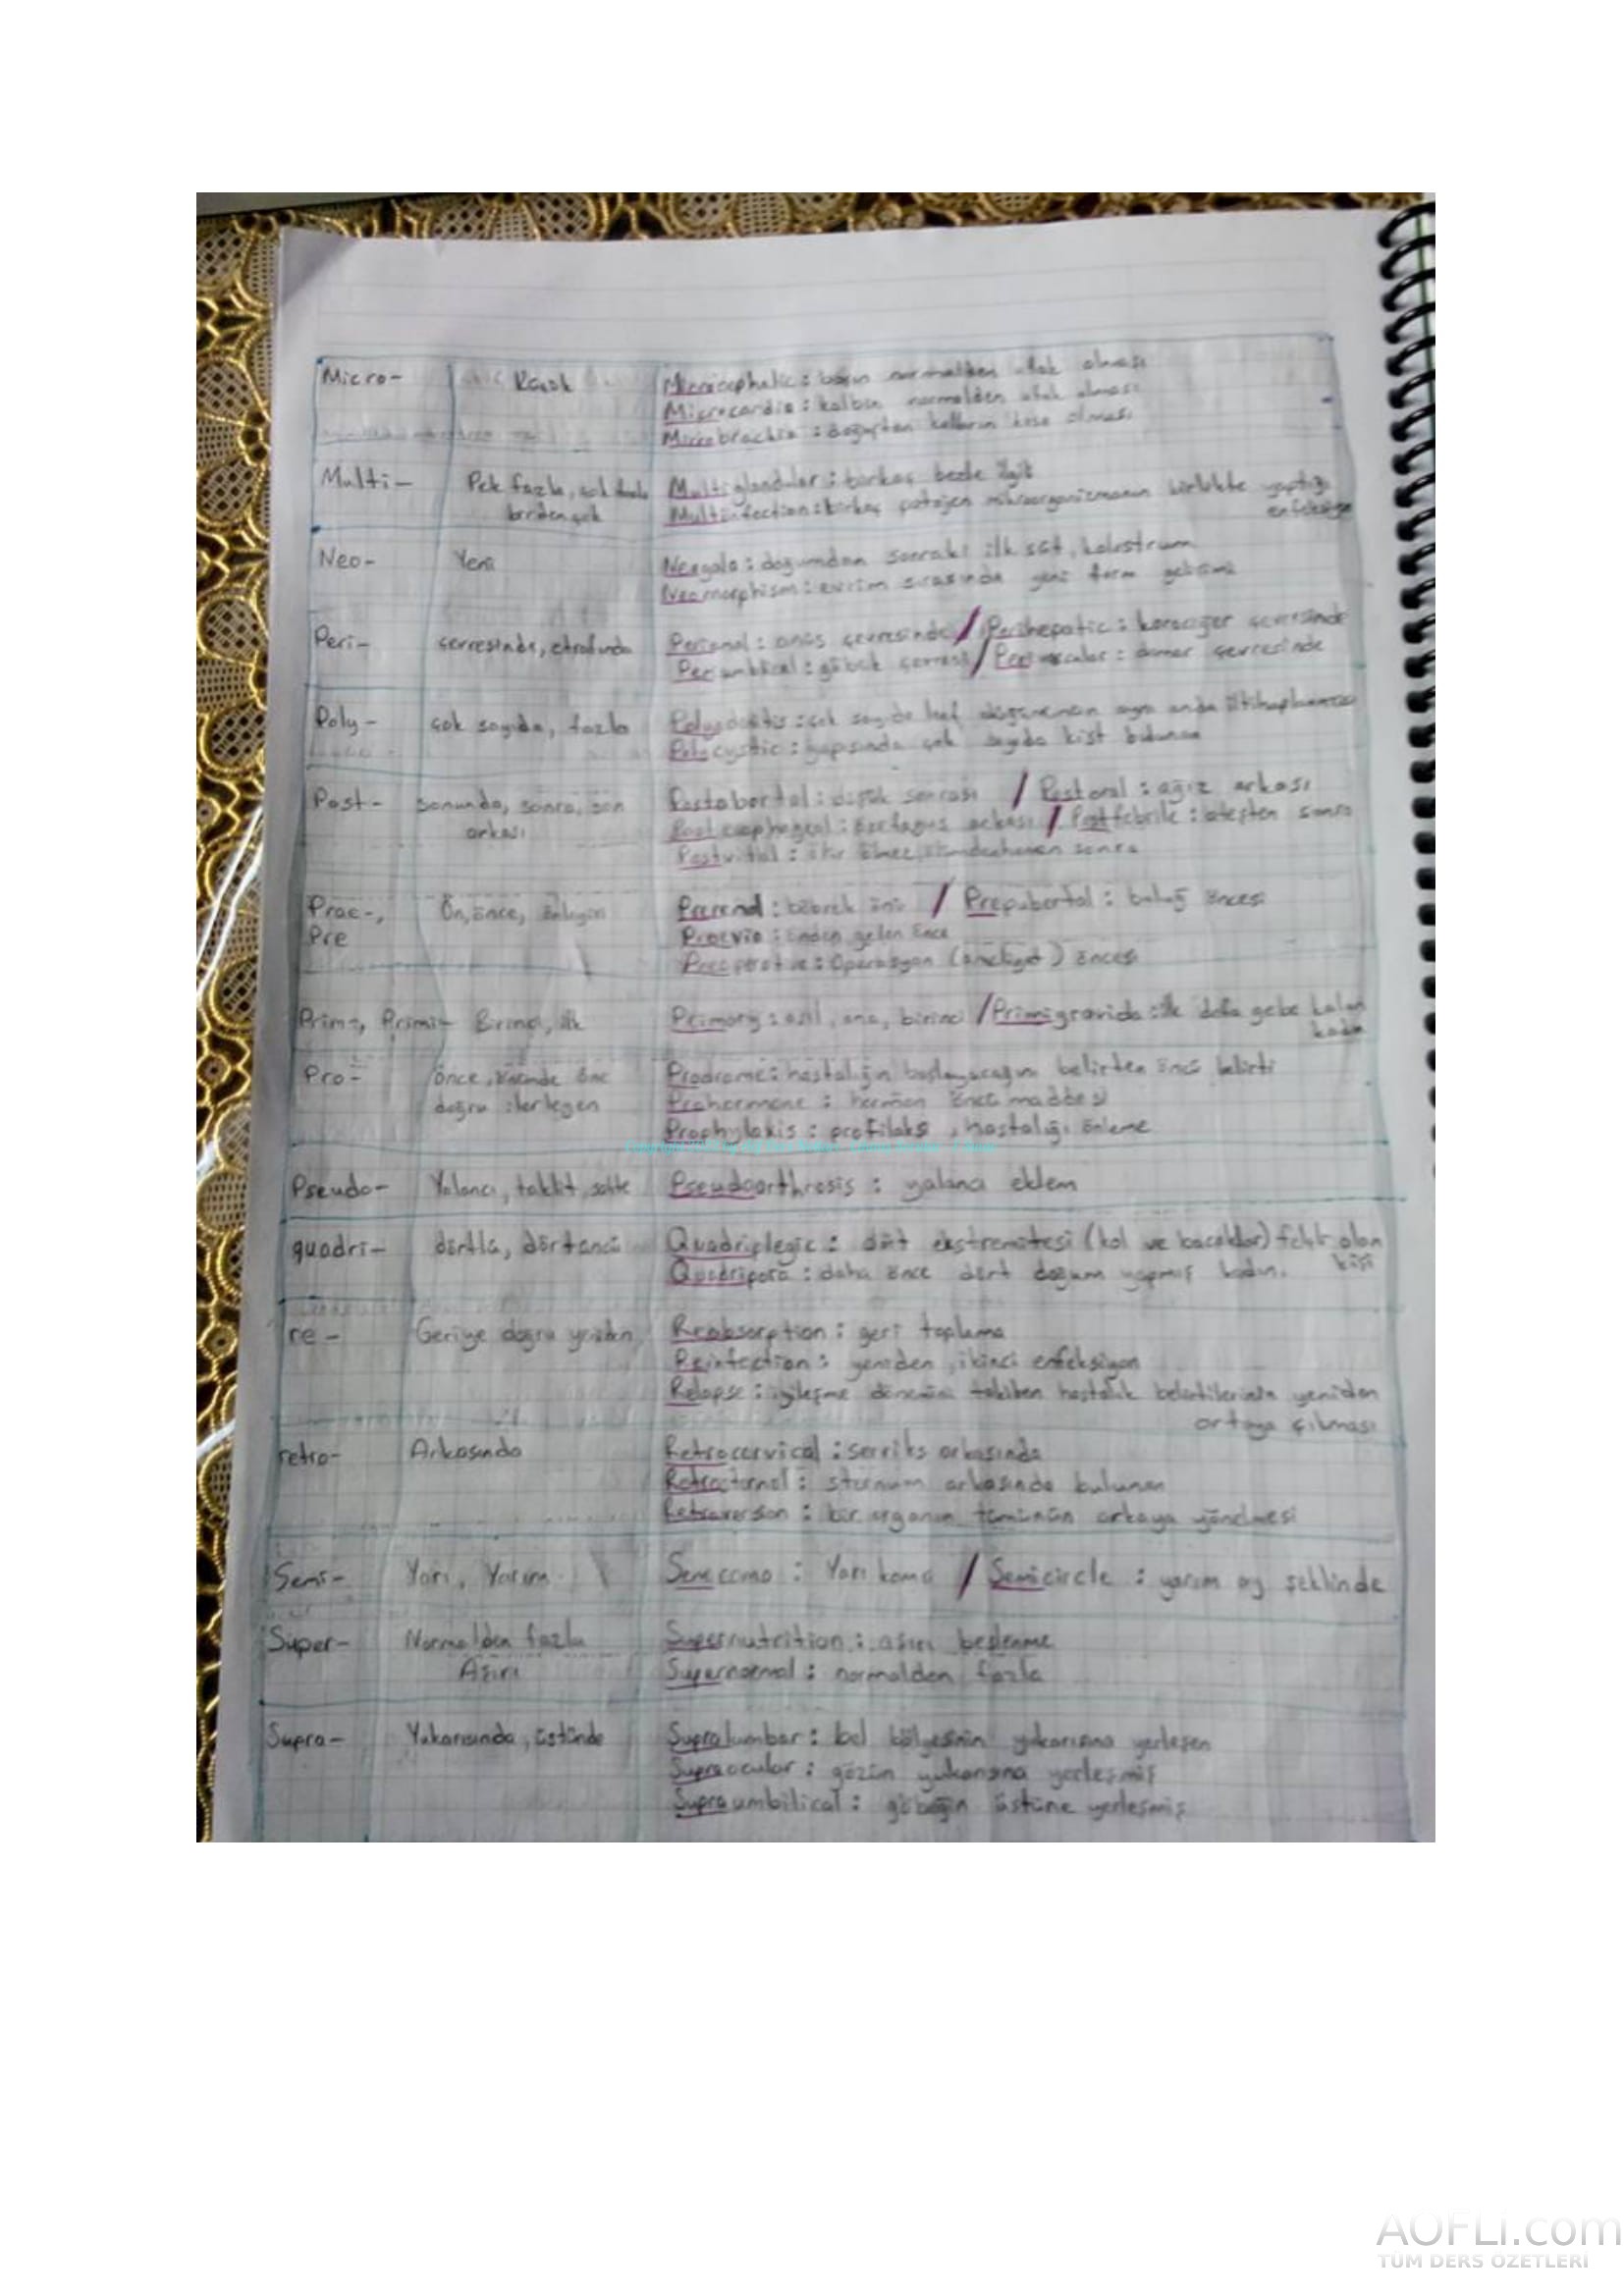 Micro- Küçük Microcephalic: başın normalden ufak olması
Microcardia: kalbin normalden ufak olması
Microbrachia: doğuştan kolların kısa olması
Multi- Pek fazla, çok birden çok Multiglandular: birkaç bezle ilgili
Multiinfection: birkaç patojen mikroorganizmanın birlikte yaptığı
enfeksiyon
Neo- Yeni Neogala: doğumdan sonraki ilk süt, kolostrum
Neomorphism: evrim sırasında yeni form gelişimi
Peri- çevresinde, etrafında Perianal: anüs çevresinde / Perihepatic: karaciğer çevresinde
Periumbilical: göbek çevresi / Perivascular: damar çevresinde
Poly- çok sayıda, fazla Polyadenitis: çok sayıda lenf düğümünün aynı anda iltihaplanması
Polycystic: yapısında çok sayıda kist bulunan
Post- sonunda, sonra, son Postabortal: düşük sonrası / Postoral: ağız arkası
arkası Postesophageal: özefagus arkası / Postfebrile: ateşten sonra
Postvital: sonra
Prae-, Ön, önce, Prerenal: böbrek önü / Prepubertal: buluğ öncesi
Pre Praevia: önden gelen önce
Preoperative: Operasyon (ameliyat) öncesi
Prim-, Primi- Birinci, ilk Primary: asıl, ana, birinci / Primigravida: ilk defa gebe kalan
kadın
Pro- önce, önünde öne Prodrome: hastalığın başlayacağını belirten öncü belirti
doğru ilerleyen Prohormone: hormon öncü maddesi
Prophylaxis: profilaksi, hastalığı önleme
Pseudo- Yalancı, taklit, sahte Pseudoarthrosis: yalancı eklem
quadri- dörtlü, dördüncü Quadriplegic: dört ekstremitesi (kol ve bacaklar) felçli olan
kişi
Quadripara: daha önce dört doğum yapmış kadın.
re- Geriye doğru yeniden Reabsorption: geri toplama
Reinfection: yeniden, ikinci enfeksiyon
Relapse: iyileşme dönemini takiben hastalık belirtilerinin yeniden
ortaya çıkması
retro- Arkasında Retrocervical: serviks arkasında
Retrosternal: sternum arkasında bulunan
Retroversion: bir organın tümünün arkaya yönelmesi
Semi- Yarı, Yarım Semicoma: Yarı koma / Semicircle: yarım ay şeklinde
Super- Normalden fazla Supernutrition: aşırı beslenme
Aşırı Supernormal: normalden fazla
Supra- Yukarısında, üstünde Supralumbar: bel bölgesinin yukarısına yerleşen
Supraocular: gözün yukarısına yerleşmiş
Supraumbilical: göbeğin üstüne yerleşmiş
AOFLI.com
TÜM DERS ÖZETLERİ